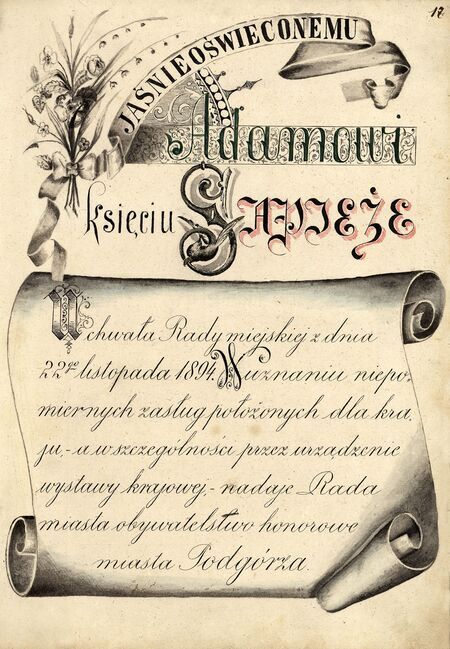 17
JAŚNIEOŚWIECONEMU
Adamowi
księciu SAPIEŻE
Uchwała Rady miejskiej z dnia
22go listopada 1894. W uznaniu niepo-
miernych zasług położonych dla kra,
ju,- a w szczególności przez urządzenie
wystawy krajowej,- nadaje Rada
miasta obywatelstwo honorowe
miasta Podgórza.